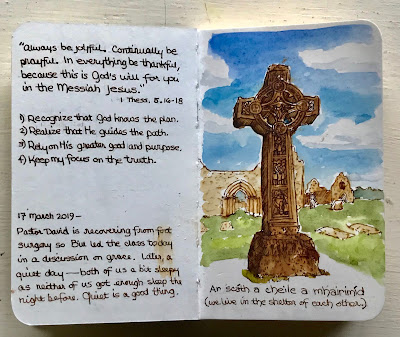 "Always be joyful. Continually be
prayful. In everything be thankful,
because this is God's will for you
in the Messiah Jesus."
1 Thess. 5.16-18
1) Recognize that God knows the plan.
2) Realize that He guides the path.
3) Rely on His greater good and purpose.
4) Keep my focus on the truth.
17 March 2019-
Pastor David is recovering from foot
surgery so Bill led the class today
in a discussion on grace. Later, a
quiet day — both of us a bit sleepy
as neither of us got enough sleep the
night before. Quiet is a good thing.
Ar scáth a cheile a mhairimíd
(we live in the shelter of each other.)